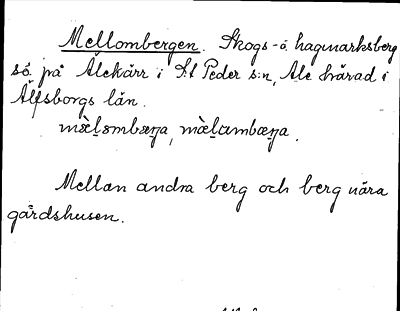 Mellombergen. Skogs- o. hagmarksberg
så på Älekärr i S:t Peder s:n, Ale härad i
Älfsborgs län.
mæ̀l̠ɘmbæŋa, mæ̀l̠ɑmbæŋa.
Mellan andra berg och berg nära
gårdshusen.